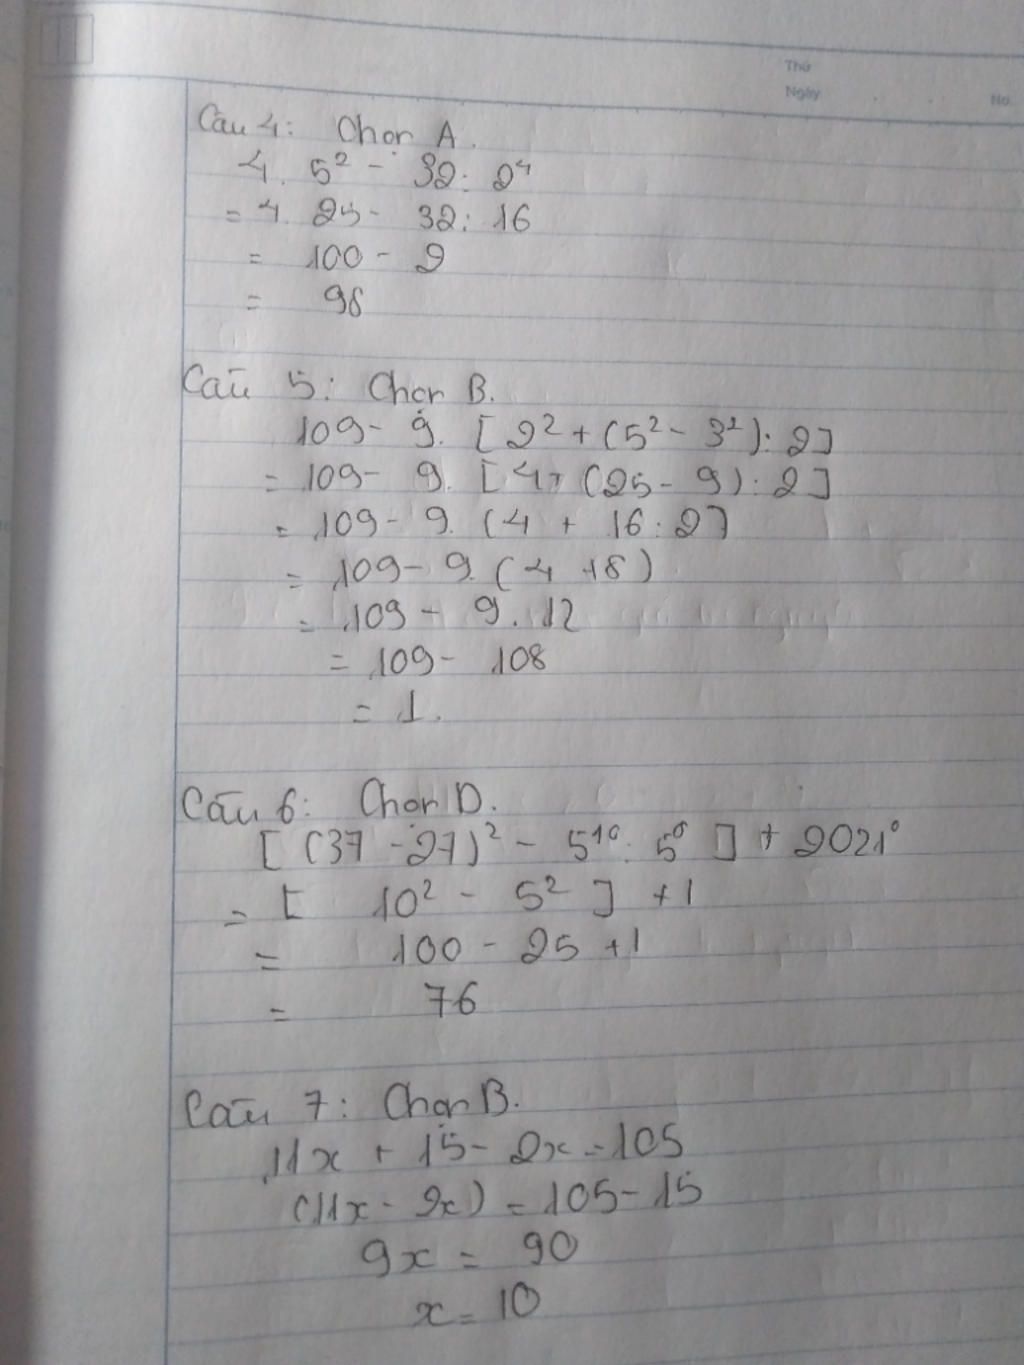 Thứ
Ngày
No.
Câu 4: Chọn A.
4. 5² - 32 : 2⁴
= 4. 25 - 32 : 16
= 100 - 2
= 98
Câu 5: Chọn B.
109 - 9. [2² + (5² - 3²) : 2]
= 109 - 9. [4 + (25 - 9) : 2]
= 109 - 9. (4 + 16 : 2]
= 109 - 9. (4 + 8)
= 109 - 9. 12
= 109 - 108
= 1.
Câu 6: Chọn D.
[(37 - 27)² - 5¹⁰ : 5⁸] + 2021⁰
= [10² - 5²] + 1
= 100 - 25 + 1
= 76
Câu 7: Chọn B.
11x + 15 - 2x = 105
(11x - 2x) = 105 - 15
9x = 90
x = 10